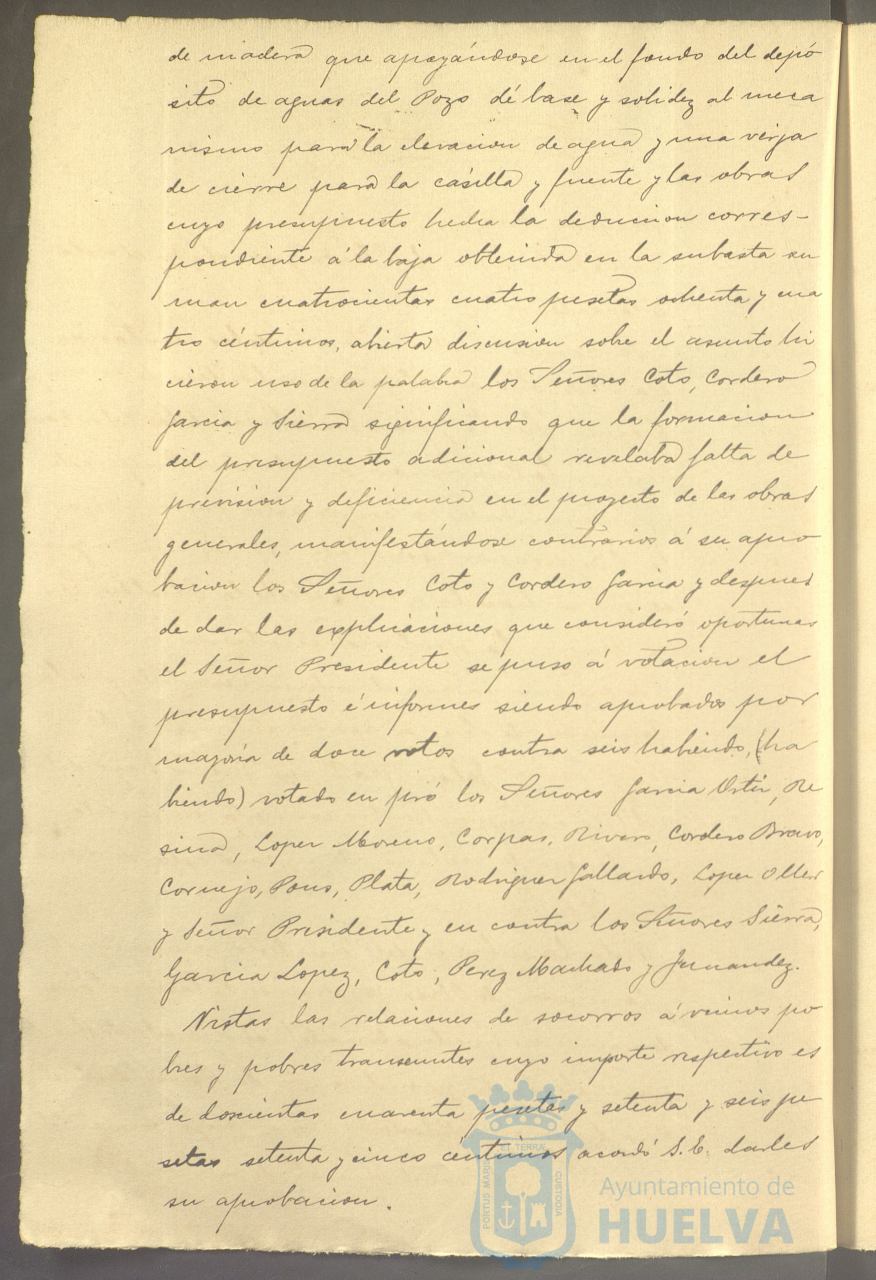 de madera que apoyándose en el fondo del depó
sito de aguas del Pozo dé base y solidez al meca
nismo para la elevacion de agua y una verja
de cierre para la casilla y fuente y las obras
cuyo presupuesto hecha la deducion corres-
pondiente á la baja obtenida en la subasta su
man cuatrocientas cuatro pesetas ochenta y cua
tro céntimos, abierta discusion sobre el asunto hi
cieron uso de la palabra los Señores Coto, Cordero
Garcia y Sierra significando que la formacion
del presupuesto adicional revelaba falta de
prevision y deficiencia en el proyecto de las obras
generales, manifestándose contrarios á su apro
bacion los Señores Coto y Cordero Garcia y despues
de dar las explicaciones que consideró oportunas
el Señor Presidente se puso á votacion el
presupuesto é informes siendo aprobados por
mayoria de doce votos contra seis habiendo, (ha
biendo) votado en pró los Señores Garcia Ortiz, Re
sina, Lopez Moreno, Corpas, Rivero, Cordero Bravo,
Cornejo, Pons, Plata, Rodriguez Gallardo, Lopez Oller
y Señor Presidente y en contra los Señores Sierra,
Garcia Lopez, Coto, Perez Machado y Fernandez.
Vistas las relaciones de socorros á vecinos po
bres y pobres transeuntes cuyo importe respectivo es
de doscientas cuarenta pesetas y setenta y seis pe
setas setenta y cinco céntimos acordó S.E. darles
su aprobacion.
PORTUS MARIS ET TERRAE CUSTODIA
Ayuntamiento de
HUELVA